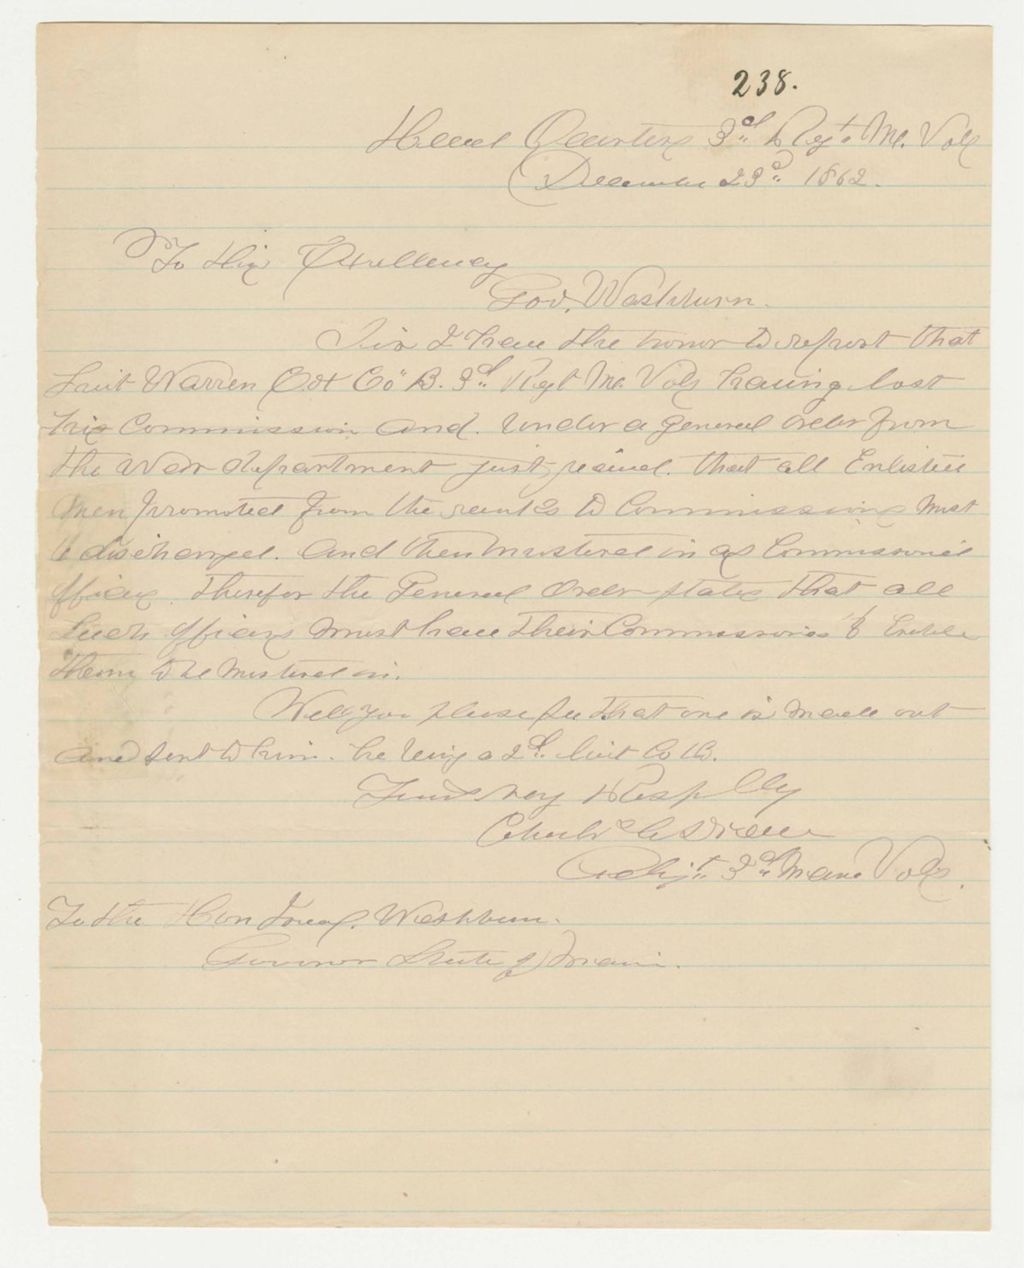 238.
Head Quarters 3d Regt Me. Vols
December 23d 1862.
To His Excellency
Gov. Washburn.
Sir I have the honor to report that
Leiut Warren Cox Co. B. 3d Regt Me Vols having lost
his Commission and. under a general order from
the War department just recived. that all Enlisted
Men promoted from the ranks to Commissions Must
be discharged. and then Mustered in as Commissioned
officers. Therefor the General Order states that all
Such officers Must have their Commissions to
them to be Mustered in.
Will you please see that one is Made out
and sent to him. he being a 2d Leiut Co B.
Very Respflly
Adjt 3d Maine Vols.
To the Hon Israel. Washburn.
Govonor State of Maine.